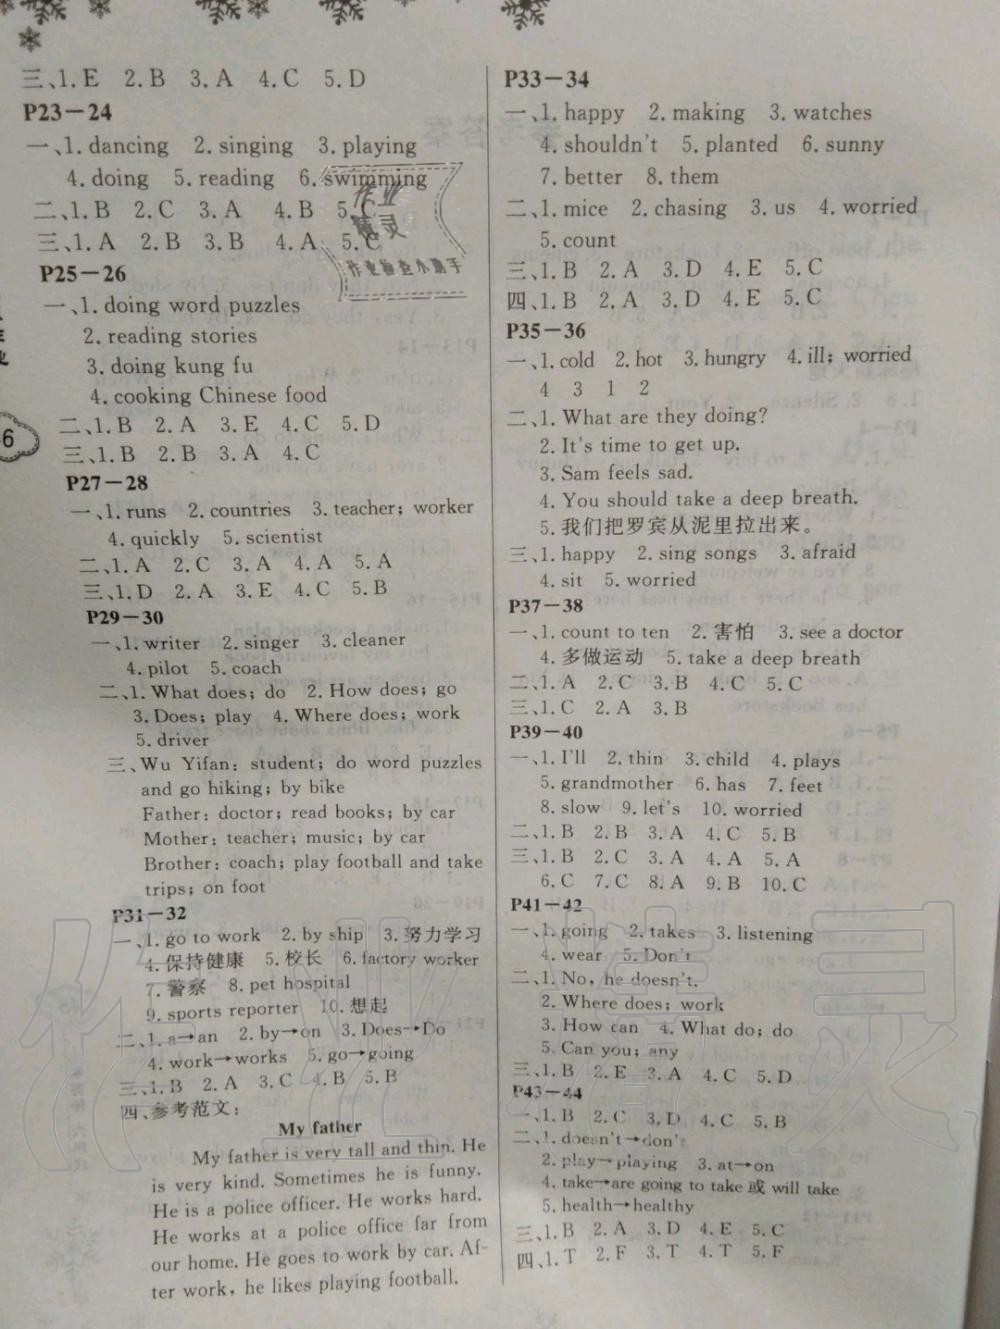 三、1. E 2. B 3. A 4. C 5. D
P23－24
一、1. dancing 2. singing 3. playing
4. doing 5. reading 6. swimming
二、1. B 2. C 3. A 4. B 5. C
三、1. A 2. B 3. B 4. A 5. C
P25－26
一、1. doing word puzzles
2. reading stories
3. doing kung fu
4. cooking Chinese food
二、1. B 2. A 3. E 4. C 5. D
三、1. B 2. B 3. A 4. C
P27－28
一、1. runs 2. countries 3. teacher; worker
4. quickly 5. scientist
二、1. A 2. C 3. A 4. A 5. A
三、1. D 2. A 3. E 4. C 5. B
P29－30
一、1. writer 2. singer 3. cleaner
4. pilot 5. coach
二、1. What does; do 2. How does; go
3. Does; play 4. Where does; work
5. driver
三、Wu Yifan: student; do word puzzles
and go hiking; by bike
Father: doctor; read books; by car
Mother: teacher; music; by car
Brother: coach; play football and take
trips; on foot
P31－32
一、1. go to work 2. by ship 3. 努力学习
4. 保持健康 5. 校长 6. factory worker
7. 警察 8. pet hospital
9. sports reporter 10. 想起
二、1. a→an 2. by→on 3. Does→Do
4. work→works 5. go→going
三、1. B 2. A 3. C 4. B 5. B
四、参考范文：
My father
My father is very tall and thin. He
is very kind. Sometimes he is funny.
He is a police officer. He works hard.
He works at a police office far from
our home. He goes to work by car. Af-
ter work, he likes playing football.
P33－34
一、1. happy 2. making 3. watches
4. shouldn't 5. planted 6. sunny
7. better 8. them
二、1. mice 2. chasing 3. us 4. worried
5. count
三、1. B 2. A 3. D 4. E 5. C
四、1. B 2. A 3. D 4. E 5. C
P35－36
一、1. cold 2. hot 3. hungry 4. ill; worried
4 3 1 2
二、1. What are they doing?
2. It's time to get up.
3. Sam feels sad.
4. You should take a deep breath.
5. 我们把罗宾从泥里拉出来。
三、1. happy 2. sing songs 3. afraid
4. sit 5. worried
P37－38
一、1. count to ten 2. 害怕 3. see a doctor
4. 多做运动 5. take a deep breath
二、1. A 2. C 3. B 4. C 5. C
三、1. C 2. A 3. B
P39－40
一、1. I'll 2. thin 3. child 4. plays
5. grandmother 6. has 7. feet
8. slow 9. let's 10. worried
二、1. B 2. B 3. A 4. C 5. B
三、1. B 2. C 3. A 4. A 5. A
6. C 7. C 8. A 9. B 10. C
P41－42
一、1. going 2. takes 3. listening
4. wear 5. Don't
二、1. No, he doesn't.
2. Where does; work
3. How can 4. What do; do
5. Can you; any
三、1. B 2. E 3. A 4. C 5. D
P43－44
一、1. B 2. C 3. D 4. C 5. B
二、1. doesn't→don't
2. play→playing 3. at→on
4. take→are going to take 或 will take
5. health→healthy
三、1. B 2. A 3. D 4. E 5. C
四、1. T 2. F 3. T 4. T 5. F
作业
精灵
作业检查小助手